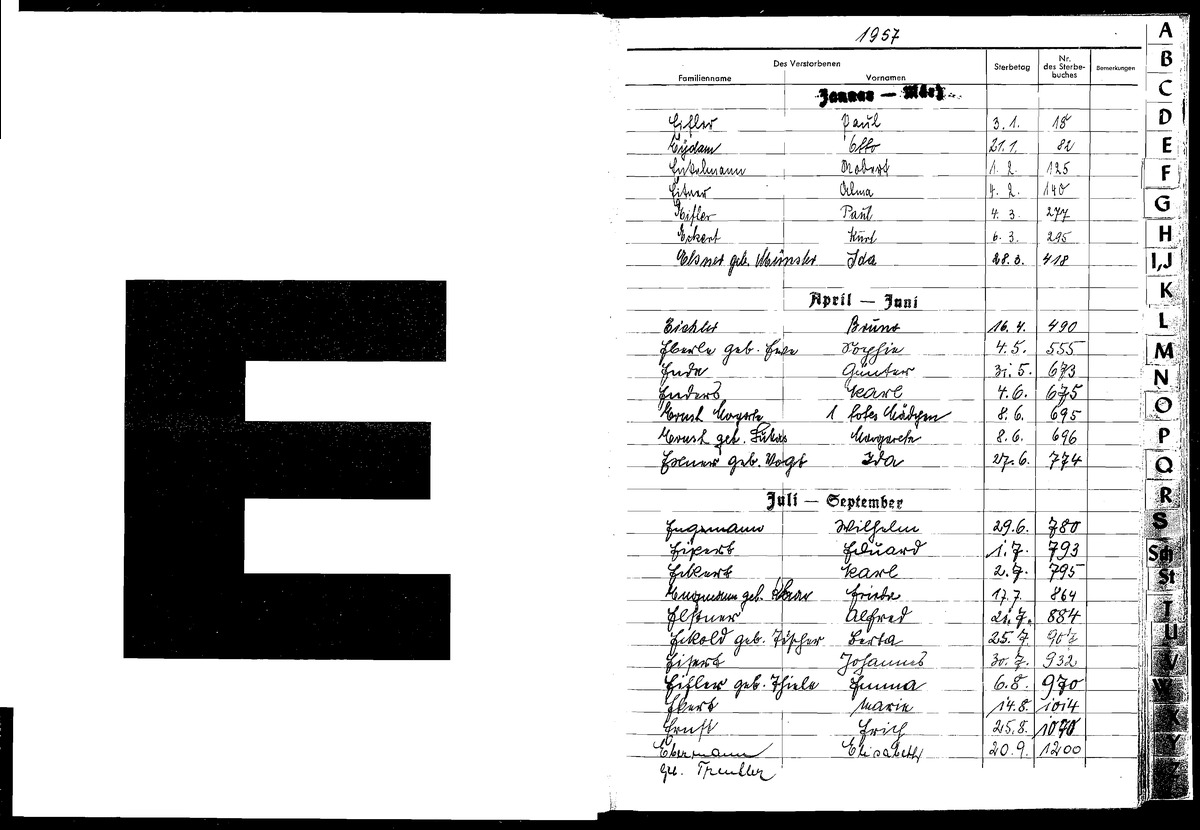 E
1957
Des Verstorbenen
Familienname Vornamen Sterbetag Nr. des Sterbebuches Bemerkungen
Januar — März
Eifler Paul 3.1. 18
Eydam Otto 21.1. 82
Enkelmann Robert 1.2. 125
Eitner Alma 4.2. 140
Eifler Paul 4.3. 277
Eckert Kurt 6.3. 295
Elsner geb. Münster Ida 28.3. 418
April — Juni
Eichler Bruno 16.4. 490
Eberle geb. Ewe Sophie 4.5. 555
Ende Günter 31.5. 673
Enders Karl 4.6. 675
Ernst 1 totes Mädchen 8.6. 695
Ernst geb. Lukas Margarete 8.6. 696
Exner geb. Vogt Ida 27.6. 774
Juli — September
Engemann Wilhelm 29.6. 780
Eipert Eduard 1.7. 793
Eckert Karl 2.7. 795
geb. Frieda 17.7. 864
Elstner Alfred 21.7. 884
Eckold geb. Tischer Berta 25.7.
Eisert Johannes 30.7. 932
Eifler geb. Thiele Emma 6.8. 970
Ebert Marie 14.8. 1014
Ernst Erich 25.8. 1070
Ebermann Elisabeth 20.9. 1200
geb. Trembler
A
B
C
D
E
F
G
H
I,J
K
L
M
N
O
P
Q
R
S
Sch
St
T
U
V
W
X
Y
Z